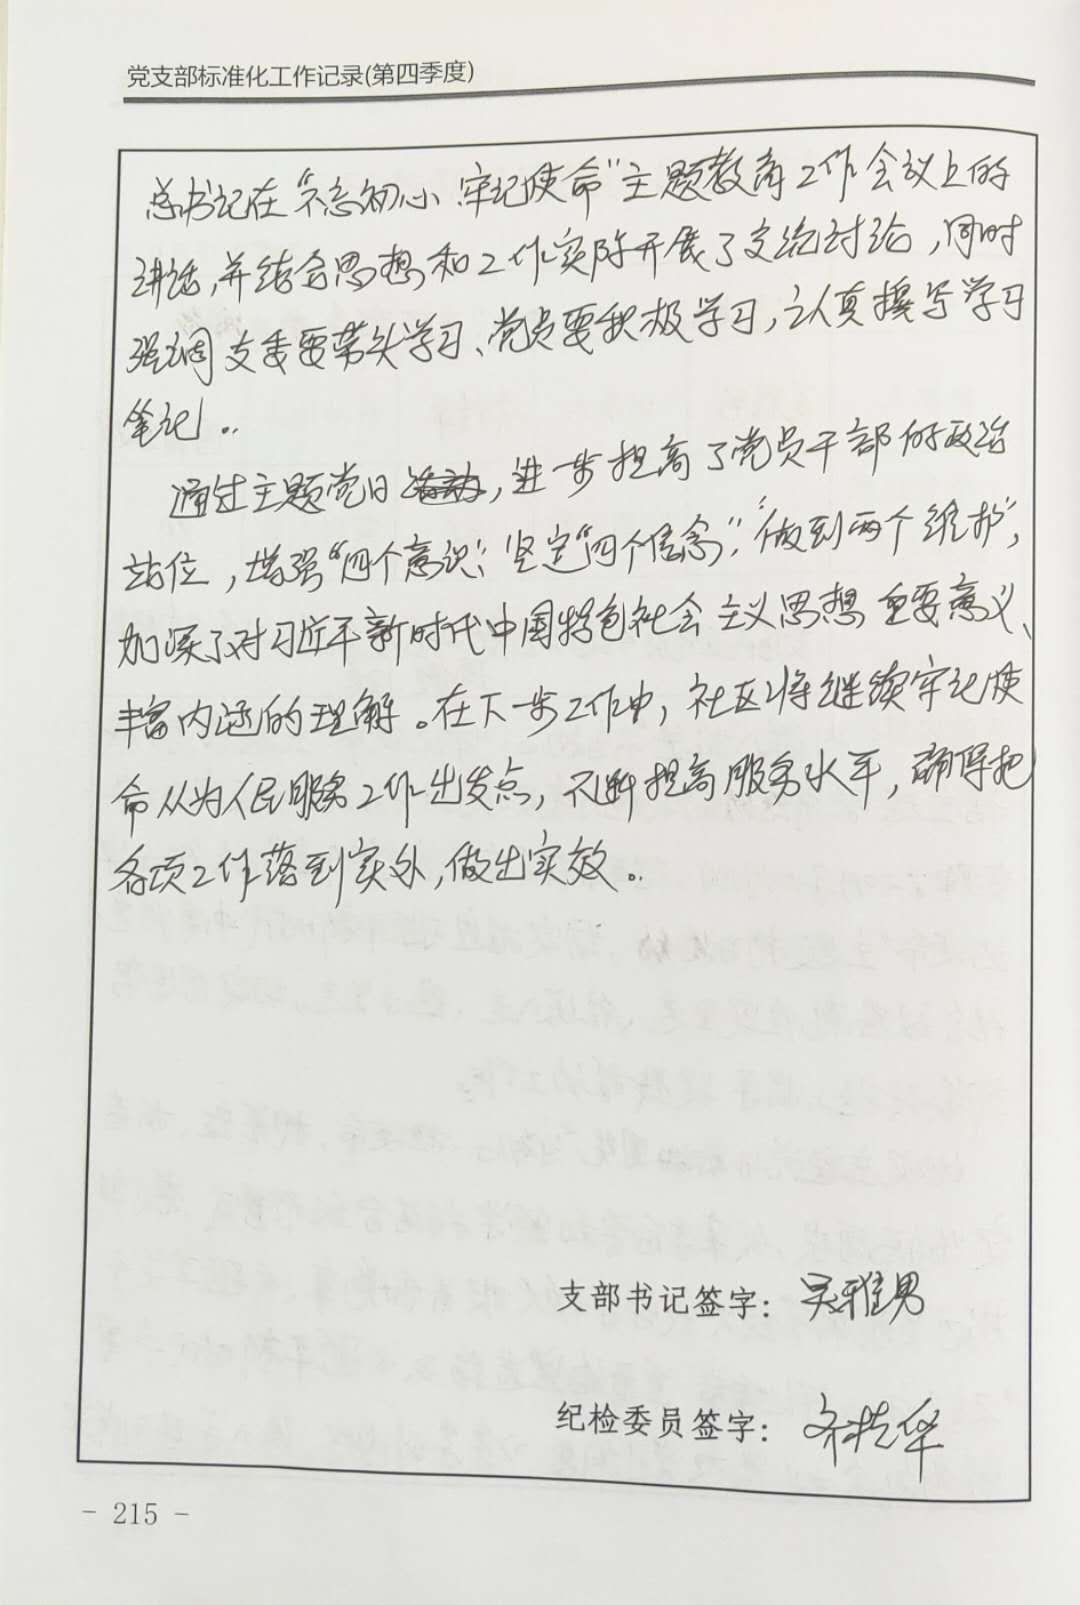 党支部标准化工作记录(第四季度)
总书记在"不忘初心 牢记使命"主题教育工作会议上的
讲话,并结合思想和工作实际开展了交流讨论,同时
强调支委要带头学习、党员要积极学习,认真撰写学习
笔记。
通过主题党日活动,进一步提高了党员干部的政治
站位,增强"四个意识"、坚定"四个信念"、"做到两个维护",
加深了对习近平新时代中国特色社会主义思想重要意义、
丰富内涵的理解。在下一步工作中,社区将继续牢记使
命从为人民服务工作出发点,不断提高服务水平,确保把
各项工作落到实处,做出实效。
支部书记签字: 吴雅男
纪检委员签字: 齐桂华
- 215 -